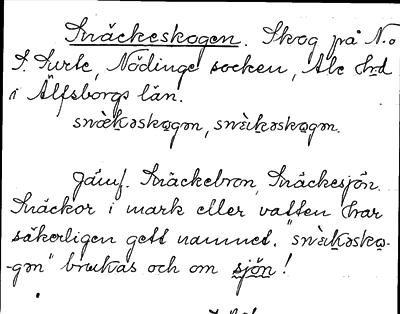 Snäckeskogen. Skog på N.o
S. Surte, Nödinge socken, Ale hrd
i Älfsborgs län.
snækəskogən, snèikəskogən.
Jämf. Snäckebron, Snäckesjön.
Snäckor i mark eller vatten har
säkerligen gett namnet. "snèikəsko-
-gən" brukas och om sjön!